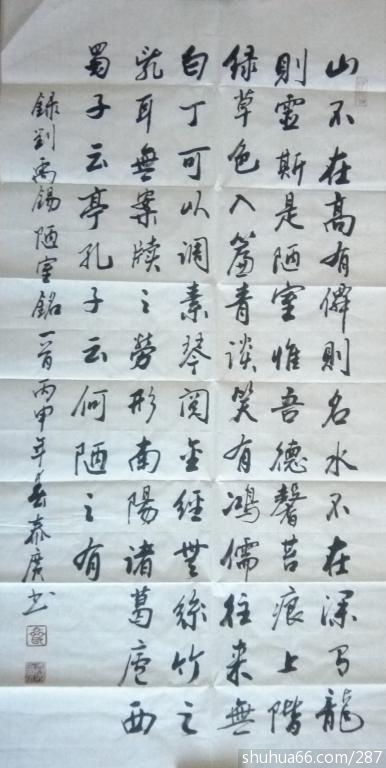 山不在高有僊則名水不在深有龍
則靈斯是陋室惟吾德馨苔痕上階
緑草色入簾青談笑有鴻儒往来無
白丁可以調素琴閲金經無絲竹之
乱耳無案牘之勞形南陽諸葛廬西
蜀子云亭孔子云何陋之有
録劉禹錫陋室銘一首丙申年春泰廣书
shuhua66.com/287